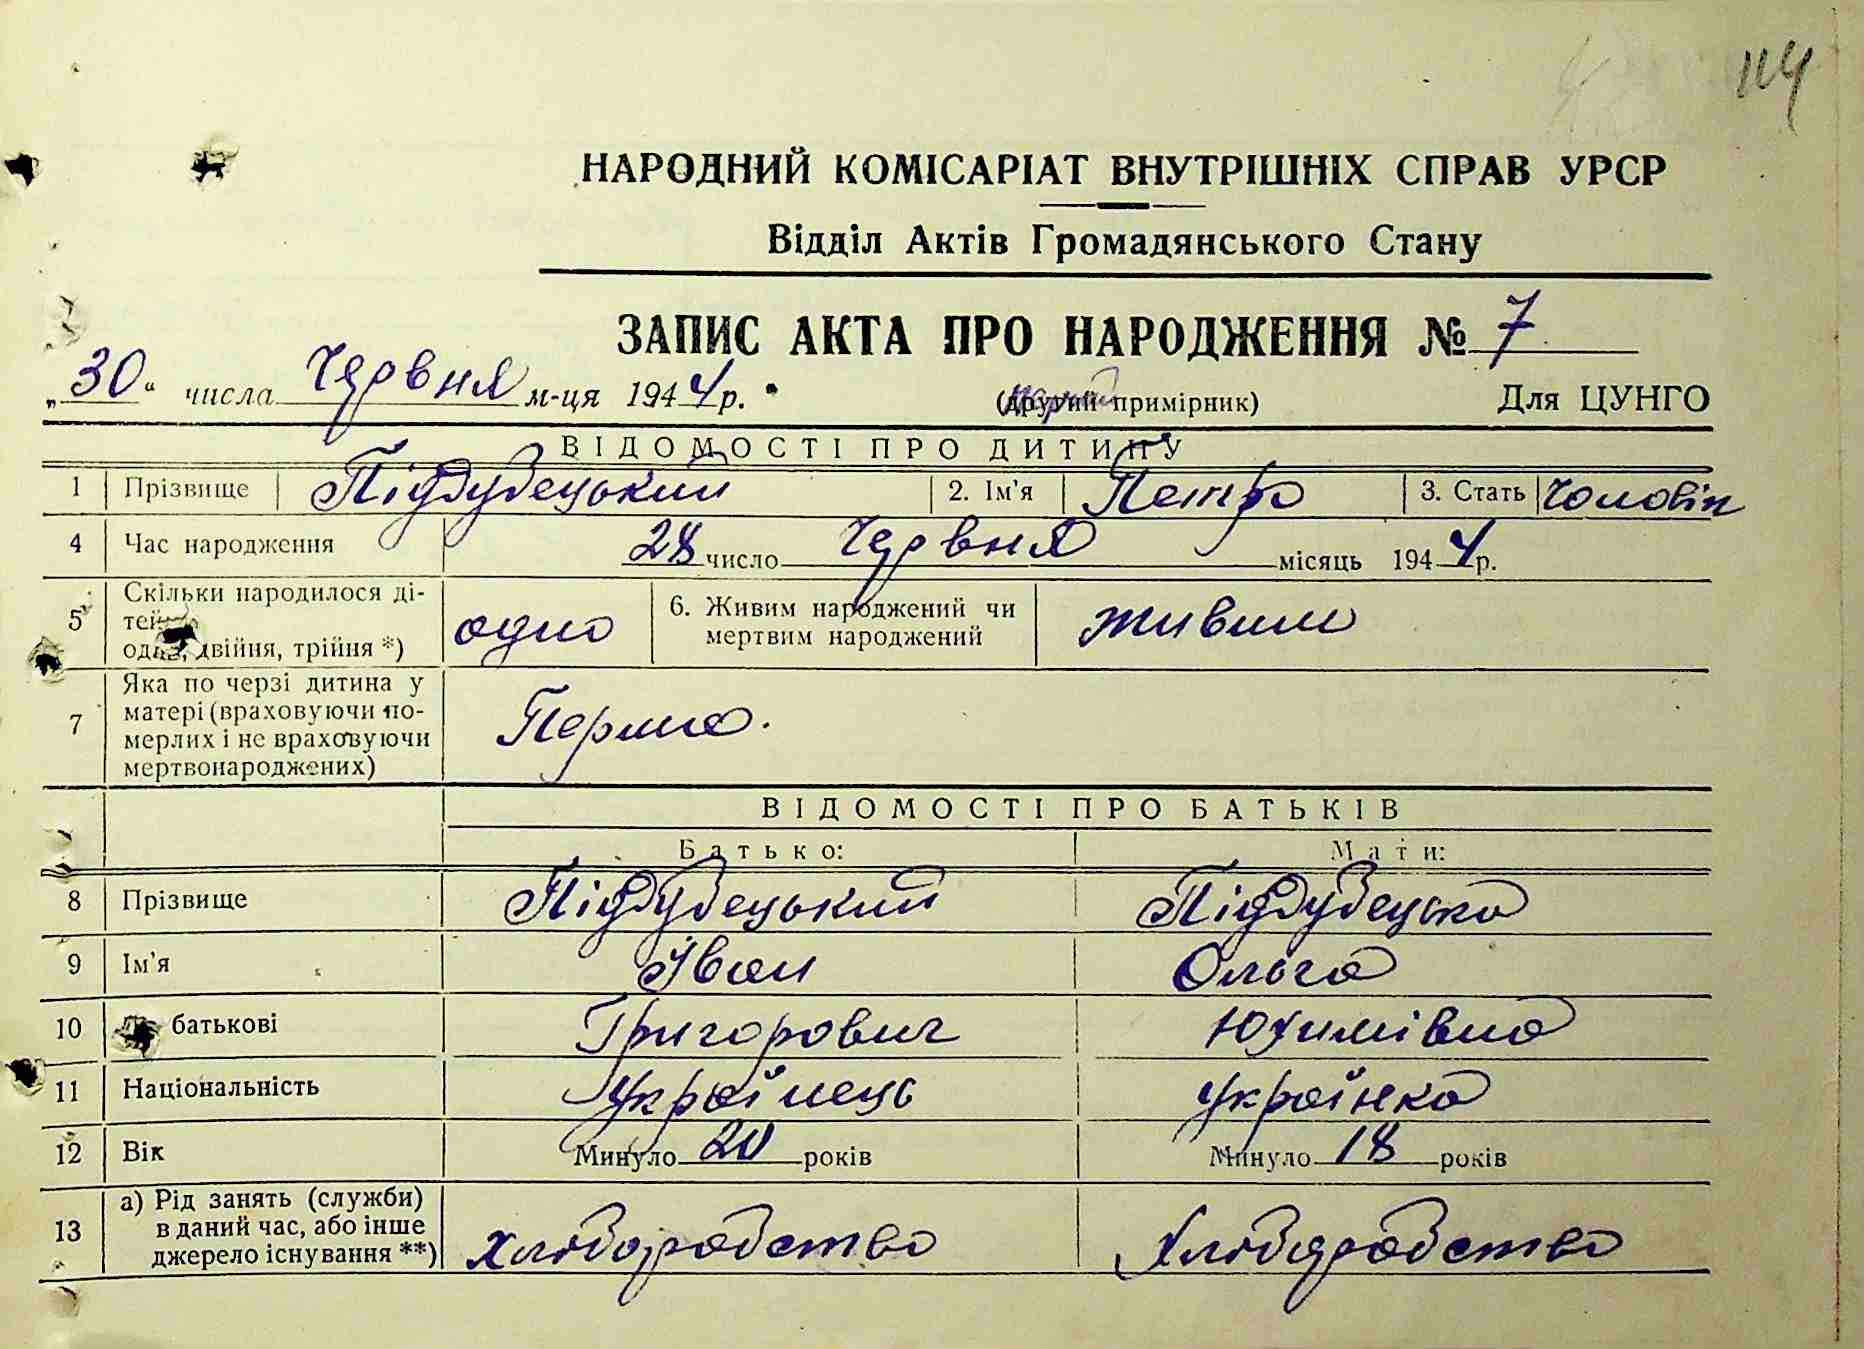 114
НАРОДНИЙ КОМІСАРІАТ ВНУТРІШНІХ СПРАВ УРСР
Відділ Актів Громадянського Стану
ЗАПИС АКТА ПРО НАРОДЖЕННЯ № 7
„30“ числа Червня м-ця 1944 р.
(другий примірник) Для ЦУНГО
ВІДОМОСТІ ПРО ДИТИНУ
1 Прізвище Піддубецький 2. Ім'я Петро 3. Стать Чоловік
4 Час народження 28 число Червня місяць 1944 р.
5 Скільки народилося ді-
тей:
одна, двійня, трійня *) одно
6. Живим народжений чи
мертвим народжений живим
7 Яка по черзі дитина у
матері (враховуючи по-
мерлих і не враховуючи
мертвонароджених) Перша.
ВІДОМОСТІ ПРО БАТЬКІВ
Батько: Мати:
8 Прізвище Піддубецький Піддубецька
9 Ім'я Іван Ольга
10 батькові Григорович Юхимівна
11 Національність Українець українка
12 Вік Минуло 20 років Минуло 18 років
13 а) Рід занять (служби)
в даний час, або інше
джерело існування **) хліборобство Хліборобство